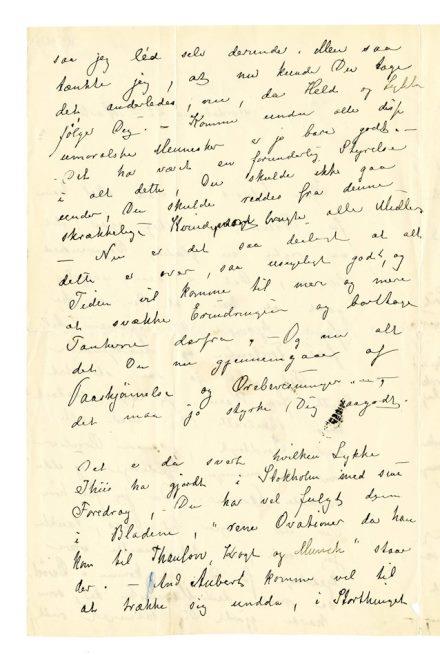 saa jeg léd selv derunde. Men saa
tænkte jeg, at nu kunde Du tage
det anderledes, nu, da Held og Lykke
følger Dig. – Komme under alle disse
umoralske Mennesker er jo bare godt. –
Det har været en forunderlig Styrelse
i alt dette, Du skulde ikke gaa
under, Du skulde reddes fra denne
skrækkelige brugte alle Midler
– Nu er det saa deiligt at alt
dette er over, saa usigeligt godt, og
Tiden vil komme til mere og mere
at svække Erindringen og borttage
Tankerne derfra, – Og nu alt
det Du nu gjennemgaaer af
Paaskjønnelse og Æresbevisninger
det maa jo styrke Dig saa godt.
Det er da svært hvilken Lykke
Thiis ha gjordt i Stokholm med sine
Foredrag, – Du har vel fulgt dem
i Bladene, "rene Ovationer da han
kom til Thaulow, Krogh og Munch" staar
der. – And Aubert komme vel til
at trække sig undda, i Storthinget